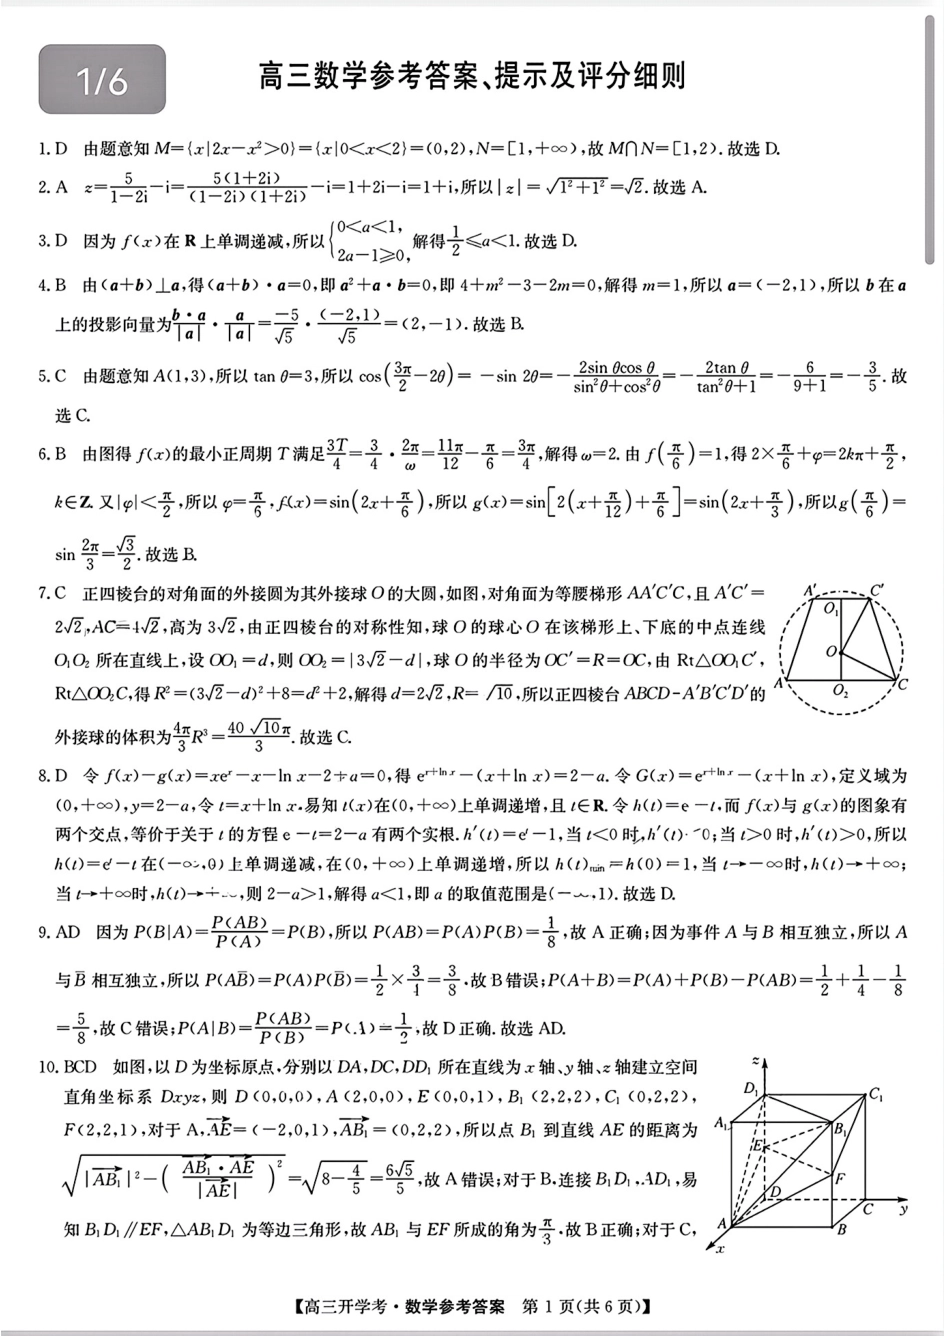 1/6
高三数学参考答案、提示及评分细则
1. D 由题意知 M={x|2x-x²>0}={x|0<x<2}=(0,2),N=[1,+∞),故 M∩N=[1,2). 故选 D.
2. A z=5/(1-2i)-i=5(1+2i)/((1-2i)(1+2i))-i=1+2i-i=1+i,所以|z|=√(1²+1²)=√2. 故选 A.
3. D 因为 f(x)在 R 上单调递减,所以{0<a<1, 2a-1≥0, 解得1/2≤a<1. 故选 D.
4. B 由(a+b)⊥a,得(a+b)·a=0,即 a²+a·b=0,即 4+m²-3-2m=0,解得 m=1,所以 a=(-2,1),所以 b 在 a
上的投影向量为b·a/|a|·a/|a|=-5/√5·(-2,1)/√5=(2,-1). 故选 B.
5. C 由题意知 A(1,3),所以 tan θ=3,所以 cos(3π/2-2θ)=-sin 2θ=-2sin θcos θ/(sin²θ+cos²θ)=-2tan θ/(tan²θ+1)=-6/(9+1)=-3/5. 故
选 C.
6. B 由图得 f(x)的最小正周期 T 满足3T/4=3/4·2π/ω=11π/12-π/6=3π/4,解得 ω=2. 由 f(π/6)=1,得 2×π/6+φ=2kπ+π/2,
k∈Z. 又|φ|<π/2,所以 φ=π/6,f(x)=sin(2x+π/6),所以 g(x)=sin[2(x+π/12)+π/6]=sin(2x+π/3),所以g(π/6)=
sin 2π/3=√3/2. 故选 B.
7. C 正四棱台的对角面的外接圆为其外接球 O 的大圆,如图,对角面为等腰梯形 AA′C′C,且 A′C′=
2√2,AC=4√2,高为 3√2,由正四棱台的对称性知,球 O 的球心 O 在该梯形上、下底的中点连线
O₁O₂ 所在直线上,设 OO₁=d,则 OO₂=|3√2-d|,球 O 的半径为 OC′=R=OC,由 Rt△OO₁C′,
Rt△OO₂C,得 R²=(3√2-d)²+8=d²+2,解得 d=2√2,R=√10,所以正四棱台 ABCD-A′B′C′D′的
外接球的体积为4π/3R³=40√10π/3. 故选 C.
A′ C′
O₁
O
A O₂ C
8. D 令 f(x)-g(x)=xeˣ-x-ln x-2+a=0,得 eˣ⁺ˡⁿ ˣ-(x+ln x)=2-a. 令 G(x)=eˣ⁺ˡⁿ ˣ-(x+ln x),定义域为
(0,+∞),y=2-a,令 t=x+ln x,易知 t(x)在(0,+∞)上单调递增,且 t∈R. 令 h(t)=e -t,而 f(x)与 g(x)的图象有
两个交点,等价于关于 t 的方程 e -t=2-a 有两个实根. h′(t)=eᵗ-1,当 t<0 时,h′(t)<0;当 t>0 时,h′(t)>0,所以
h(t)=eᵗ-t 在(-∞,0)上单调递减,在(0,+∞)上单调递增,所以 h(t)min=h(0)=1,当 t→-∞时,h(t)→+∞;
当 t→+∞时,h(t)→+∞,则 2-a>1,解得 a<1,即 a 的取值范围是(-∞,1). 故选 D.
9. AD 因为 P(B|A)=P(AB)/P(A)=P(B),所以 P(AB)=P(A)P(B)=1/8,故 A 正确;因为事件 A 与 B 相互独立,所以 A
与B̄ 相互独立,所以 P(AB̄)=P(A)P(B̄)=1/2×3/4=3/8,故 B 错误;P(A+B)=P(A)+P(B)-P(AB)=1/2+1/4-1/8
=5/8,故 C 错误;P(A|B)=P(AB)/P(B)=P(A)=1/2,故 D 正确. 故选 AD.
10. BCD 如图,以 D 为坐标原点,分别以 DA,DC,DD₁ 所在直线为 x 轴、y 轴、z 轴建立空间
直角坐标系 Dxyz,则 D(0,0,0),A(2,0,0),E(0,0,1),B₁(2,2,2),C₁(0,2,2),
F(2,2,1),对于 A,AE→=(-2,0,1),AB₁→=(0,2,2),所以点 B₁ 到直线 AE 的距离为
√(|AB₁→|²-(AB₁→·AE→/|AE→|)²)=√(8-4/5)=6√5/5,故 A 错误;对于 B,连接 B₁D₁,AD₁,易
知 B₁D₁∥EF,△AB₁D₁ 为等边三角形,故 AB₁ 与 EF 所成的角为π/3,故 B 正确;对于 C,
z
D₁ C₁
A₁ B₁
E
F
D C y
A B
x
【高三开学考·数学参考答案 第 1 页(共 6 页)】